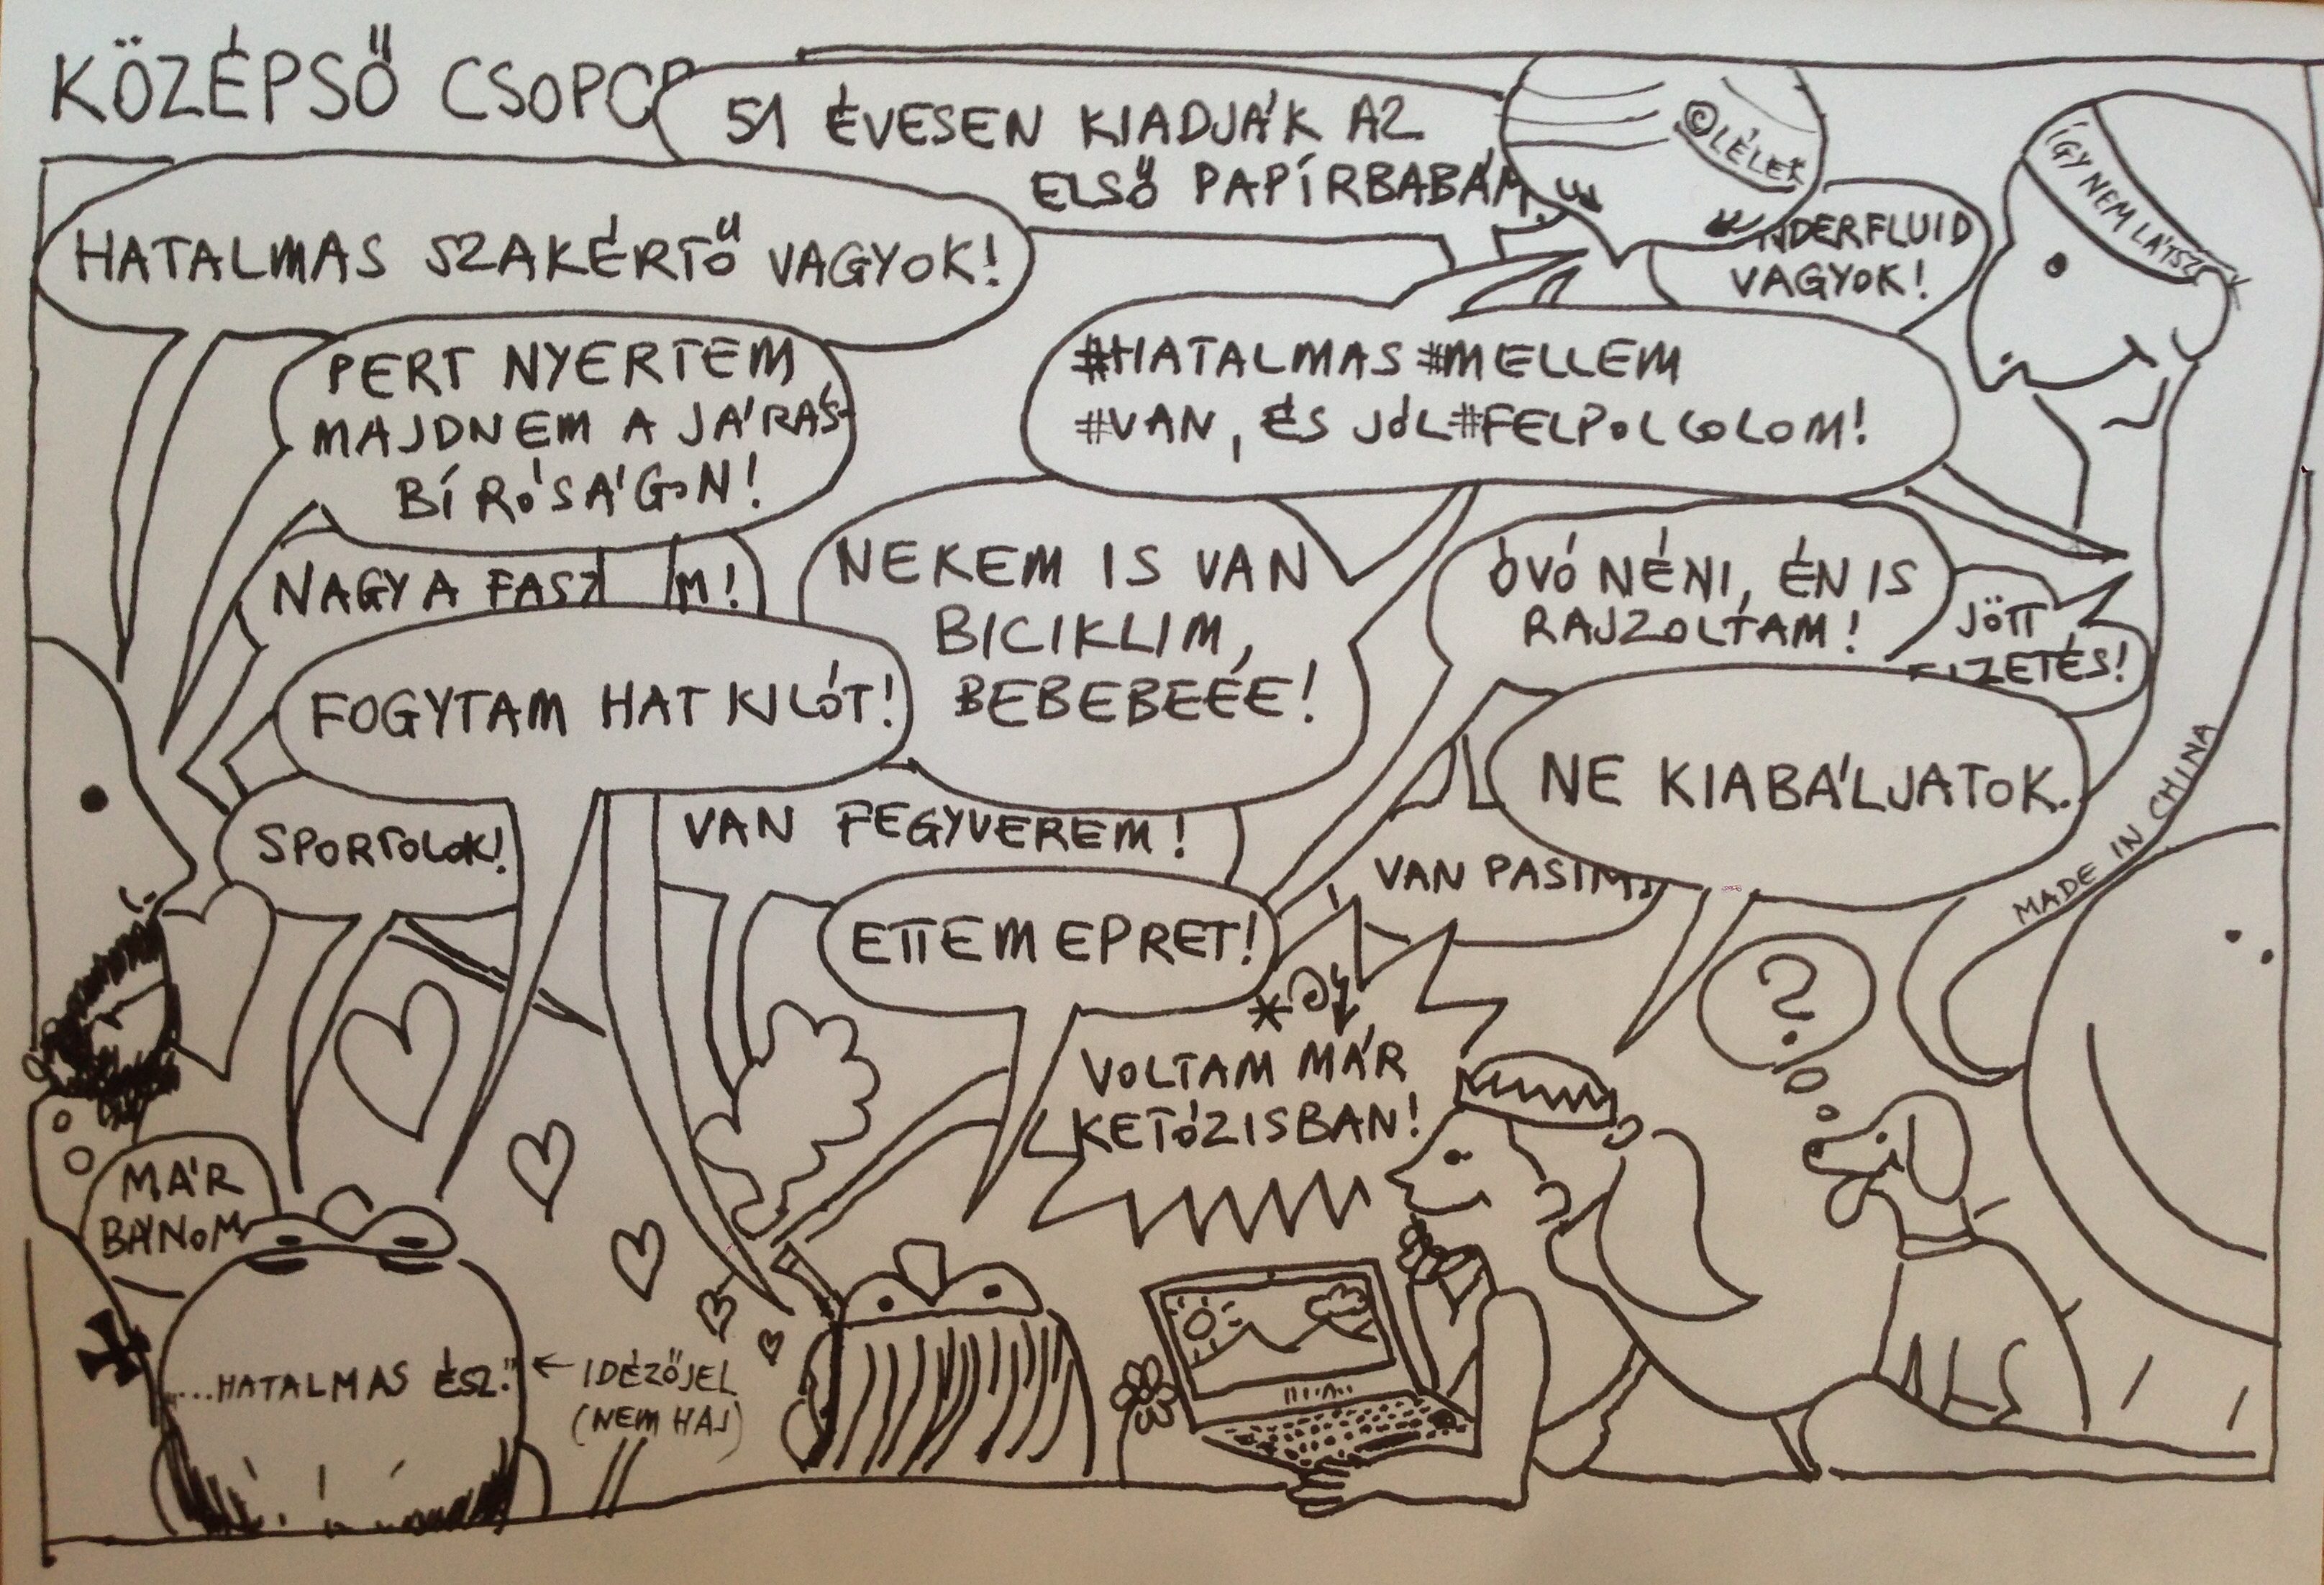 KÖZÉPSŐ
51 ÉVESEN KIADJÁK AZ
ELSŐ
©LÉLEK
ÍGY NEM LÁTSZ
HATALMAS SZAKÉRTŐ VAGYOK!
VAGYOK!
PERT NYERTEM
MAJDNEM A JÁRÁS-
BÍRÓSÁGON!
#HATALMAS #MELLEM
#VAN, ÉS JÓL #FELPOLCOLOM!
NAGY A
NEKEM IS VAN
BICIKLIM,
BEBEBEEE!
ÓVÓ NÉNI, ÉN IS
RAJZOLTAM!
JÖTT
FIZETÉS!
FOGYTAM HAT KILÓT!
NE KIABÁLJATOK.
MADE IN CHINA
SPORTOLOK!
VAN FEGYVEREM!
VAN PASIM!
ETTEM EPRET!
?
VOLTAM MÁR
KETÓZISBAN!
MÁR
BÁNOM
...HATALMAS ÉSZ."
← IDÉZŐJEL
(NEM HAJ)